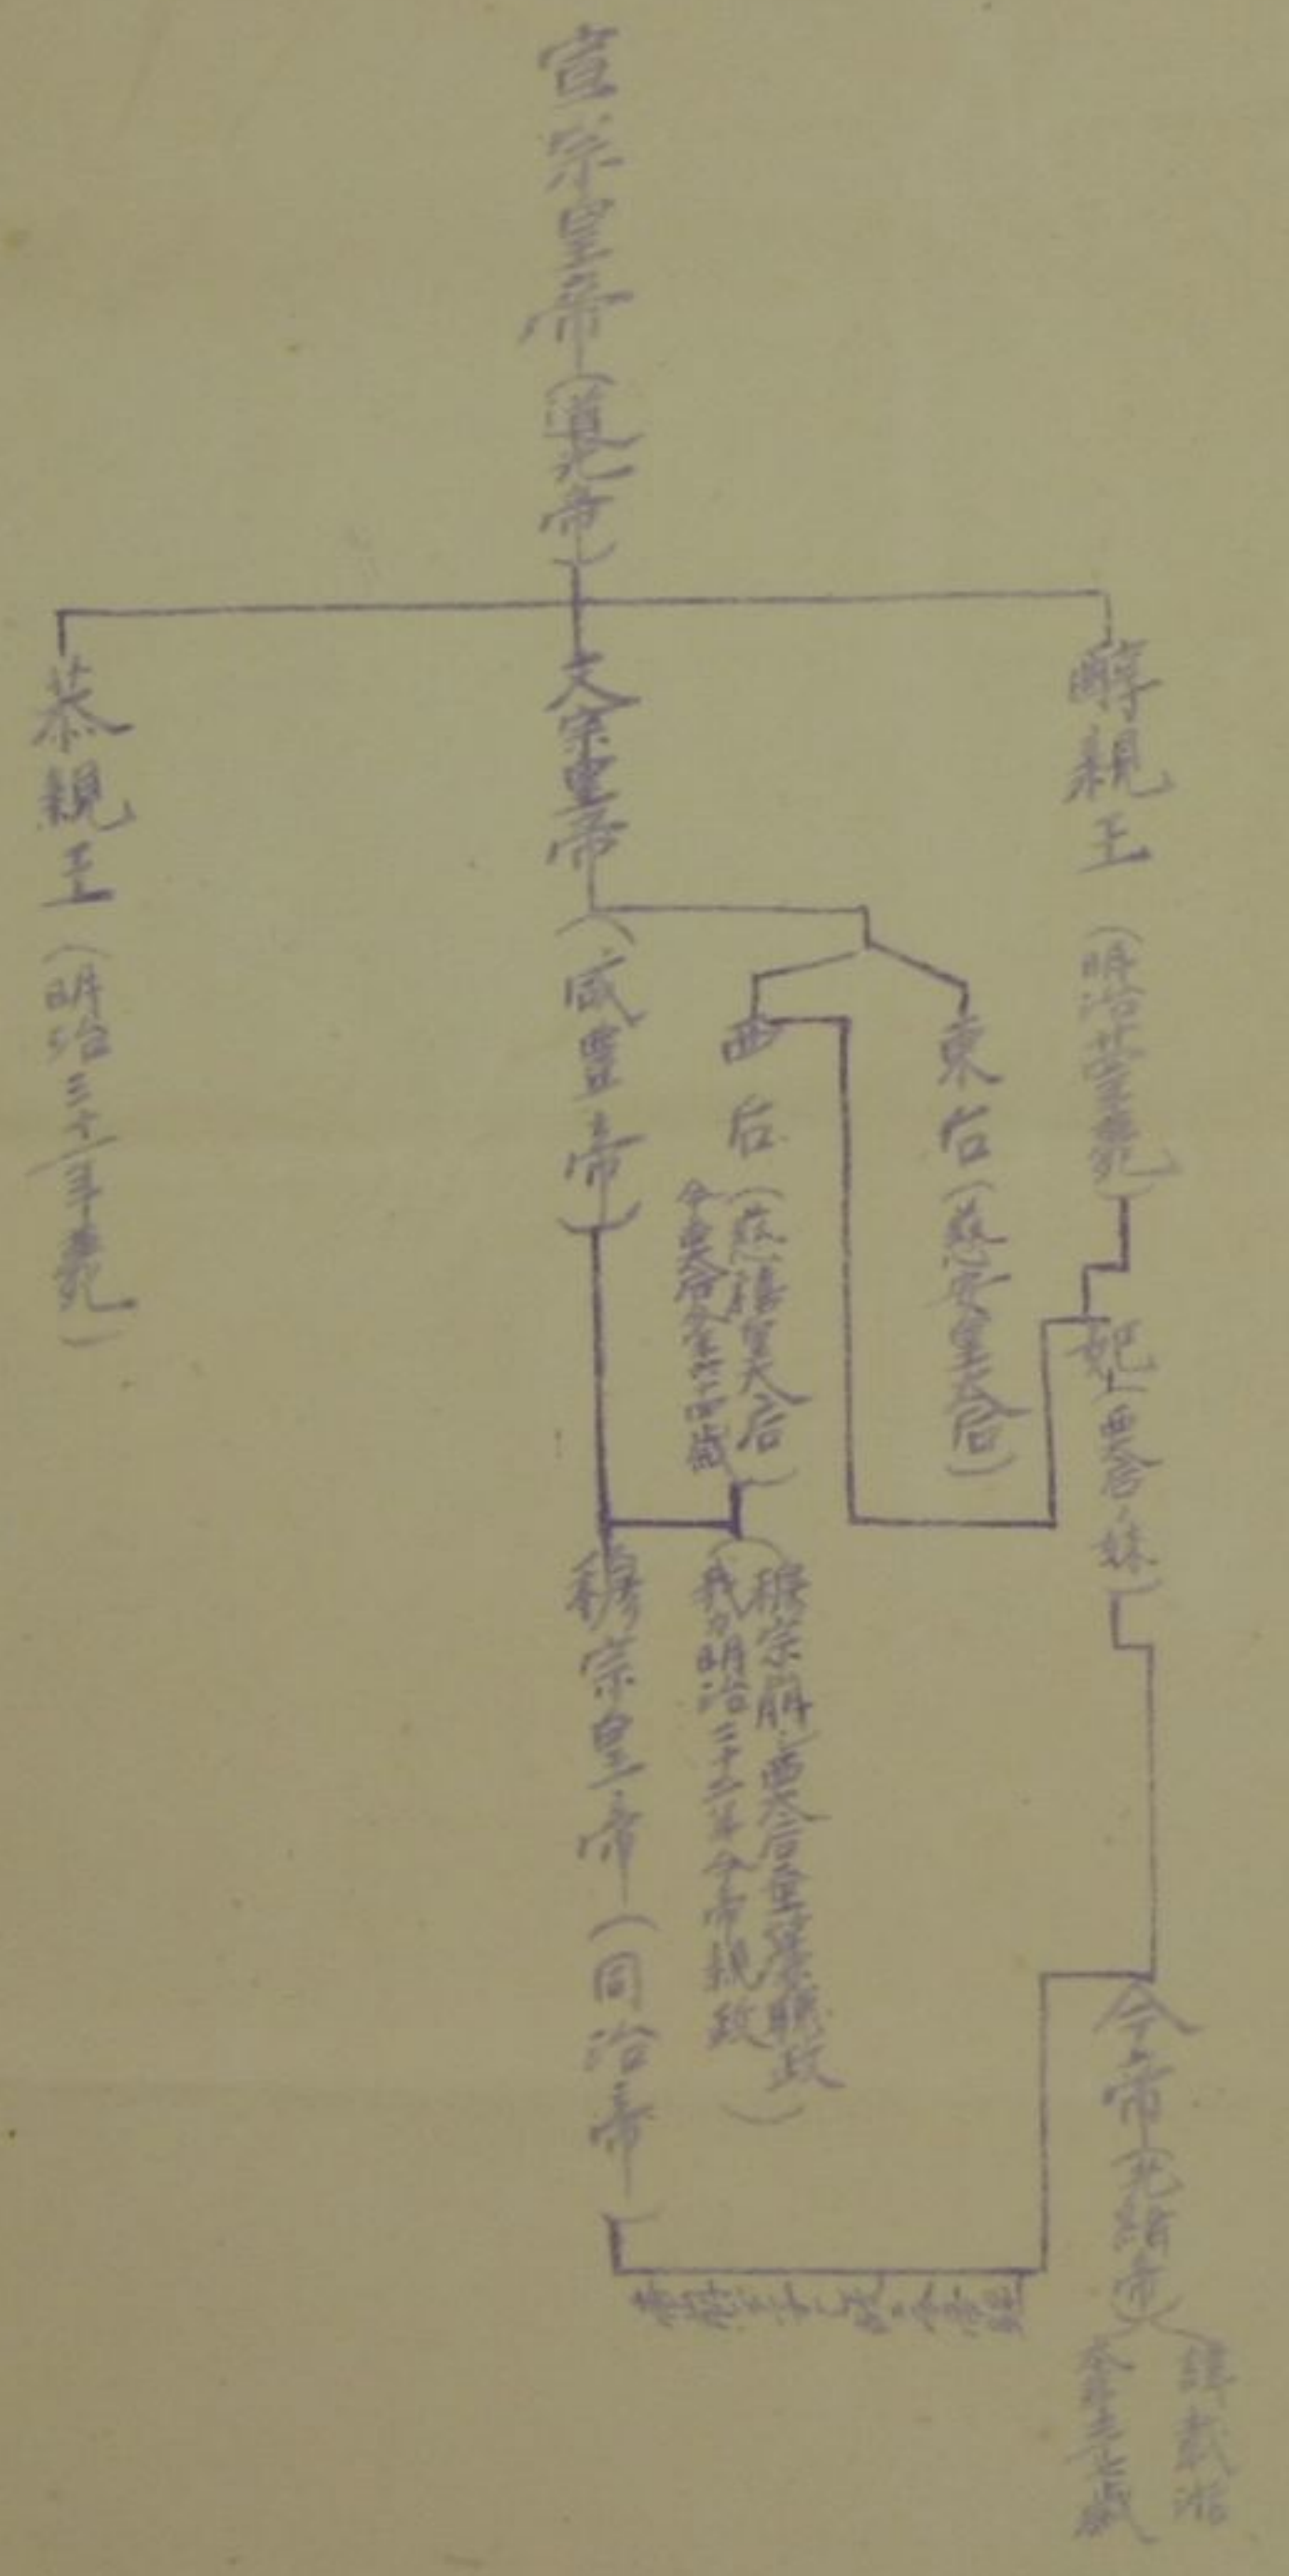 宣宗皇帝(道光帝)
醇親王
妃(西太后ノ妹)
今帝(光緒帝)
諱載湉
文宗皇帝(咸豊帝)
東后(慈安皇太后)
西后(慈禧皇太后
今西太后今年六十四歳)
(穆宗崩シ西太后垂簾聴政
我カ明治二十二年今帝親政)
穆宗皇帝(同治帝)
恭親王(明治三十一年薨)